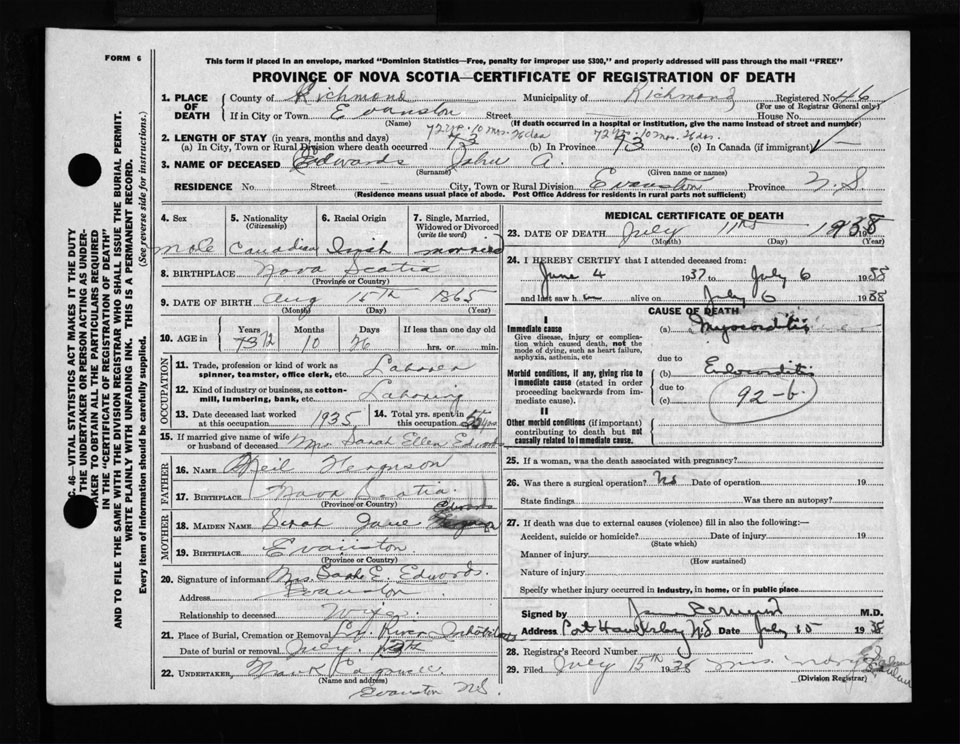 FORM 6
This form if placed in an envelope, marked "Dominion Statistics—Free, penalty for improper use $300," and properly addressed will pass through the mail "FREE"
PROVINCE OF NOVA SCOTIA—CERTIFICATE OF REGISTRATION OF DEATH
C. 46—VITAL STATISTICS ACT MAKES IT THE DUTY
THE UNDERTAKER OR PERSON ACTING AS UNDER-
TAKER TO OBTAIN ALL THE PARTICULARS REQUIRED
IN THE "CERTIFICATE OF REGISTRATION OF DEATH"
AND TO FILE THE SAME WITH THE DIVISION REGISTRAR WHO SHALL ISSUE THE BURIAL PERMIT.
WRITE PLAINLY WITH UNFADING INK. THIS IS A PERMANENT RECORD.
Every item of information should be carefully supplied. (See reverse side for instructions.)
1. PLACE OF DEATH County of Richmond Municipality of Richmond Registered No. 46
(For use of Registrar General only)
If in City or Town Evanston Street House No.
(Name) (If death occurred in a hospital or institution, give the name instead of street and number)
2. LENGTH OF STAY (in years, months and days) 72 yrs. 10 mos. 26 das 72 yrs. 10 mos. 26 das.
(a) In City, Town or Rural Division where death occurred 73 (b) In Province 73 (c) In Canada (if immigrant)
3. NAME OF DECEASED Edwards John A.
(Surname) (Given name or names)
RESIDENCE No. Street City, Town or Rural Division Evanston Province N.S
(Residence means usual place of abode. Post Office Address for residents in rural parts not sufficient)
4. Sex 5. Nationality (Citizenship) 6. Racial Origin 7. Single, Married, Widowed or Divorced (write the word)
Male Canadian Irish married
8. BIRTHPLACE Nova Scotia
(Province or Country)
9. DATE OF BIRTH Aug 15th 1865
(Month) (Day) (Year)
10. AGE in Years Months Days If less than one day old
73 72 10 26 hrs. or min.
OCCUPATION
11. Trade, profession or kind of work as spinner, teamster, office clerk, etc. Laborer
12. Kind of industry or business, as cotton-mill, lumbering, bank, etc. Laboring
13. Date deceased last worked at this occupation 1935 14. Total yrs. spent in this occupation 55 yrs
15. If married give name of wife or husband of deceased Mrs Sarah Ellen Edwards
FATHER
16. NAME Neil Ferguson
17. BIRTHPLACE Nova Scotia
(Province or Country)
MOTHER
18. MAIDEN NAME Sarah Jane Edwards
19. BIRTHPLACE Evanston
(Province or Country)
20. Signature of informant Mrs. Sarah E. Edwards.
Address Evanston
Relationship to deceased Wife.
21. Place of Burial, Cremation or Removal River Inhabitants
Date of burial or removal July 13th
22. UNDERTAKER,
(Name and address)
Evanston N.S.
MEDICAL CERTIFICATE OF DEATH
23. DATE OF DEATH July 11th 1938
(Month) (Day) (Year)
24. I HEREBY CERTIFY that I attended deceased from:
June 4 1937 to July 6 1938
and last saw h im alive on July 6 1938
CAUSE OF DEATH
I
Immediate cause (a) Myocarditis
Give disease, injury or complication which caused death, not the mode of dying, such as heart failure, asphyxia, asthenia, etc
due to
Morbid conditions, if any, giving rise to immediate cause (stated in order proceeding backwards from immediate cause). (b) Endocarditis
due to
(c)
92-b.
II
Other morbid conditions (if important) contributing to death but not causally related to immediate cause.
25. If a woman, was the death associated with pregnancy?
26. Was there a surgical operation? No Date of operation 19
State findings Was there an autopsy?
27. If death was due to external causes (violence) fill in also the following:—
Accident, suicide or homicide? Date of injury 19
(State which)
Manner of injury
(How sustained)
Nature of injury
Specify whether injury occurred in industry, in home, or in public place
Signed by M.D.
Address Port Hawkesbury N.S Date July 15 1938
28. Registrar's Record Number
29. Filed July 15th 1938 Mrs. Mary
(Division Registrar)